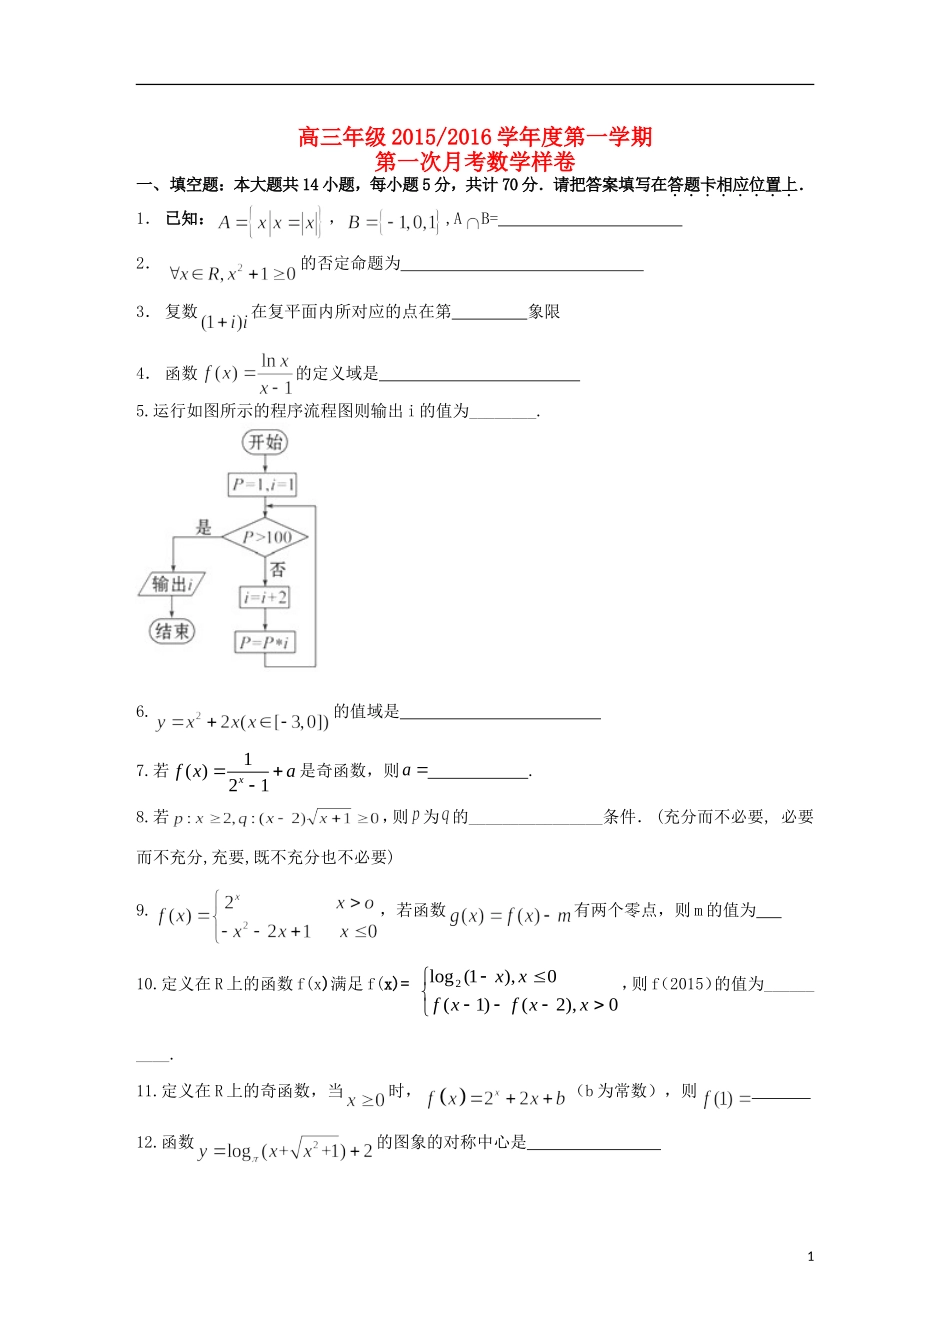 高三年级 2015/2016 学年度第一学期
第一次月考数学样卷
一、填空题：本大题共 14 小题，每小题 5 分，共计 70 分．请把答案填写在答题卡相应位置上．
1． 已知：A={x|x=|x|}，B={-1,0,1},A∩B=______
2． ∀x∈R,x²+1≥0 的否定命题为______
3． 复数(1+i)i在复平面内所对应的点在第______象限
4． 函数 f(x)=ln x/(x-1) 的定义域是______
5.运行如图所示的程序流程图则输出 i 的值为________.
开始
P=1,i=1
是
P>100
否
输出i
i=i+2
结束
P=P*i
6. y=x²+2x(x∈[-3,0]) 的值域是______
7.若 f(x)=1/(2^x-1)+a 是奇函数，则a=______.
8.若 p:x≥2,q:(x-2)√(x+1)≥0,则p为q的________________条件. (充分而不必要, 必要
而不充分,充要,既不充分也不必要)
9. f(x)={2^x x>o -x²-2x+1 x≤0，若函数g(x)=f(x)-m有两个零点，则 m 的值为___
10.定义在 R 上的函数 f(x)满足 f(x)= {log₂(1-x),x≤0 f(x-1)-f(x-2),x>0,则 f(2015)的值为______
____.
11.定义在 R 上的奇函数，当x≥0时，f(x)=2^x+2x+b（b 为常数）,则 f(1)=______
12.函数y=log_π(x+√(x²+1))+2的图象的对称中心是______
1